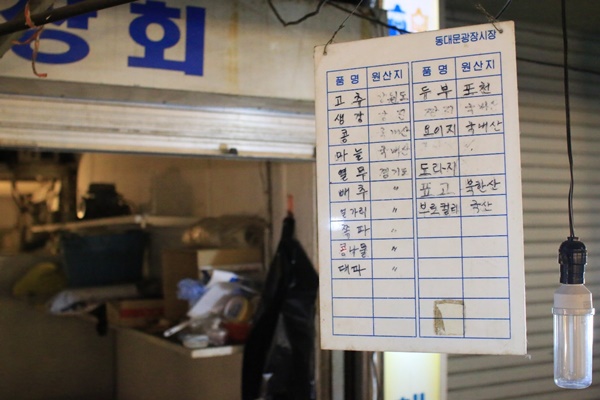 상회
동대문광장시장
품명 원산지 품명 원산지
고추 강원도 두부 포천
생강 국내산
콩 오이지 국내산
마늘 국내산
열무 경기도 도라지
배추 〃 표고 북한산
얼가리 〃 부로컬리 국산
쪽파 〃
콩나물 〃
대파 〃